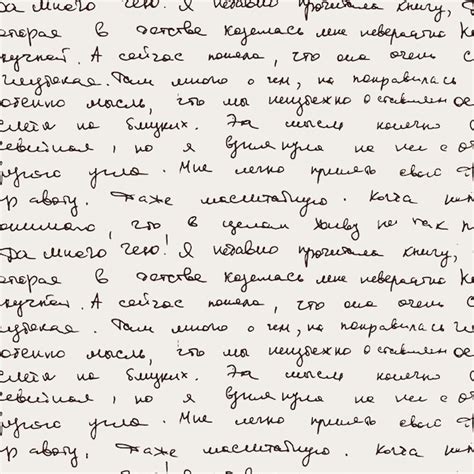 Да много чего! Я недавно прочитала книгу,
которая в детстве казалась мне невероятно
скучной. А сейчас поняла, что она очень
глубокая. Там много о чем, но понравилась
мысль, что мы неизбежно оставляем
на близких. Эта мысль конечно
, но я взглянула на нее с
другого угла. Мне легко принять свою
Даже масштабную. Когда
, что в целом живу не так
Да много чего! Я недавно прочитала книгу,
которая в детстве казалась мне невероятно
скучной. А сейчас поняла, что она очень
глубокая. Там много о чем, но понравилась
мысль, что мы неизбежно оставляем
на близких. Эта мысль конечно
, но я взглянула на нее с
другого угла. Мне легко принять свою
Даже масштабную. Когда